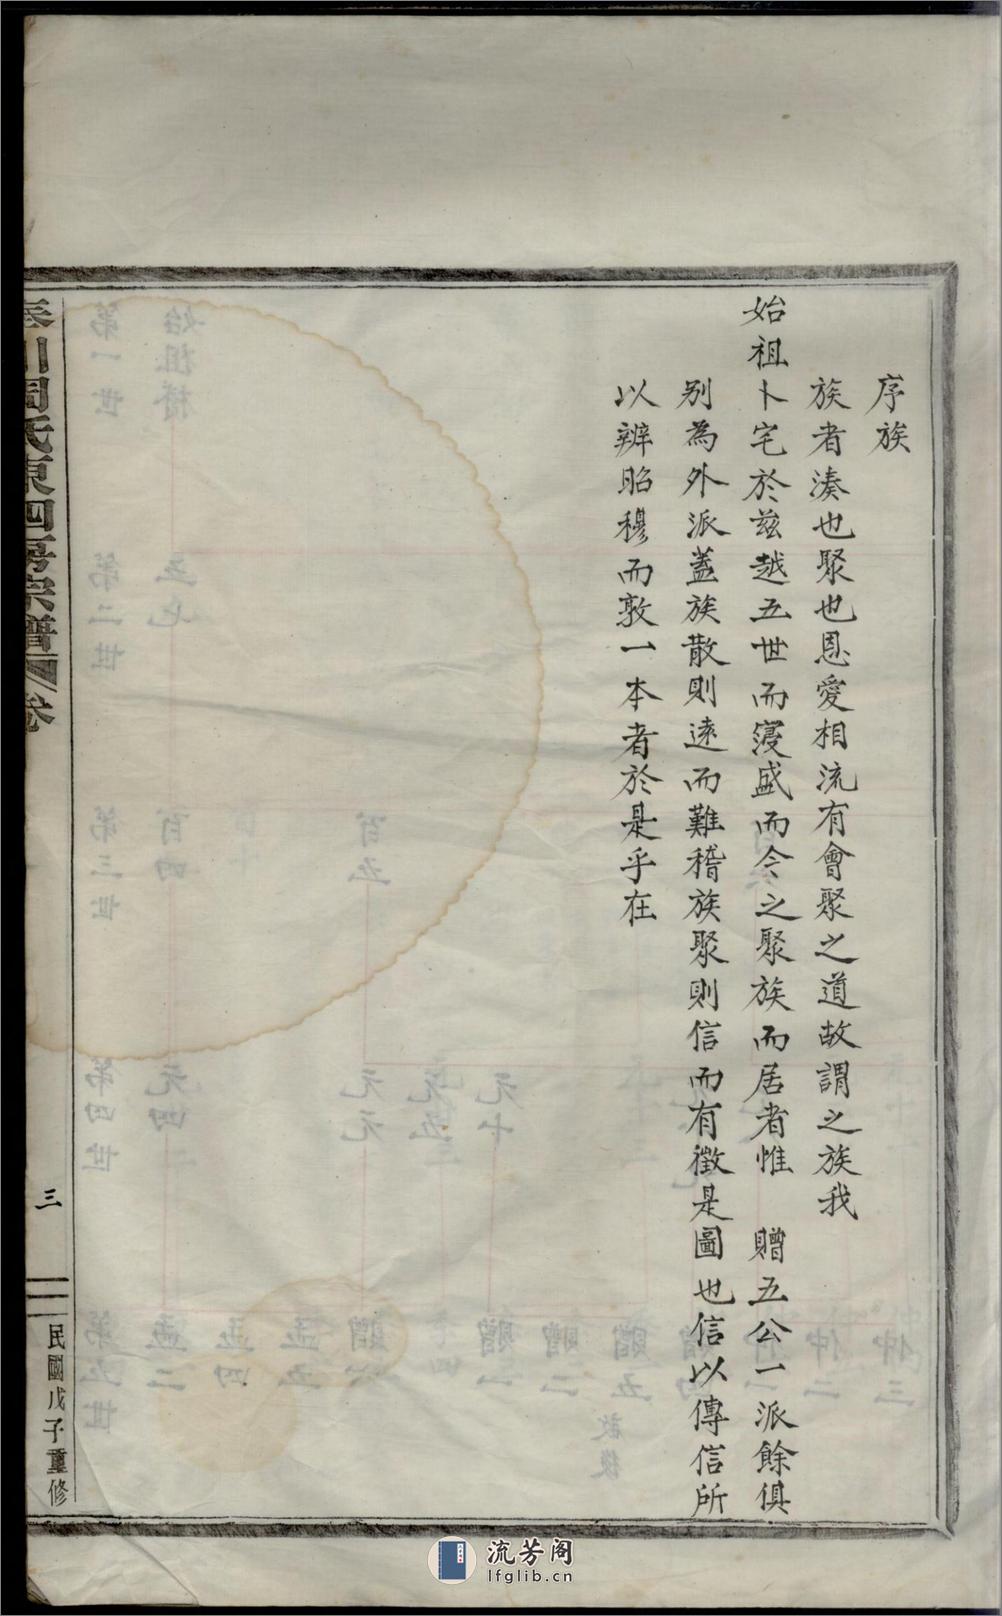 序族
族者湊也聚也恩愛相流有會聚之道故謂之族我
始祖卜宅於茲越五世而寖盛而今之聚族而居者惟 贈五公一派餘俱
別為外派蓋族散則遠而難稽族聚則信而有徵是圖也信以傳信所
以辨昭穆而敦一本者於是乎在
川周氏東四房宗譜 卷
三
民國戊子重修
流芳阁
lfglib.cn